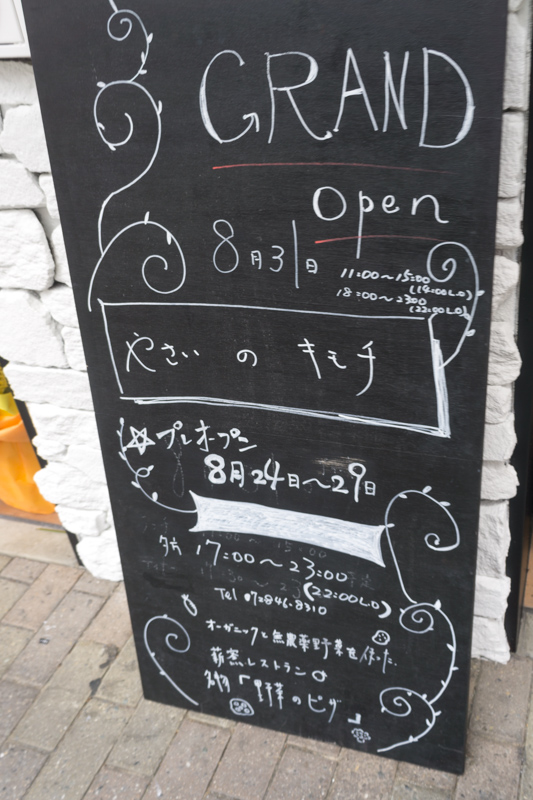 GRAND
Open
8月31日
11:00〜15:00
(14:00L.O)
18:00〜23:00
(22:00L.O)
やさい の キモチ
☆プレオープン
8月24日〜29日
夕方 17:00〜23:00
(22:00L.O)
Tel 072-846-8310
オーガニックと無農薬野菜を使った
レストラン
名物「野菜のピザ」